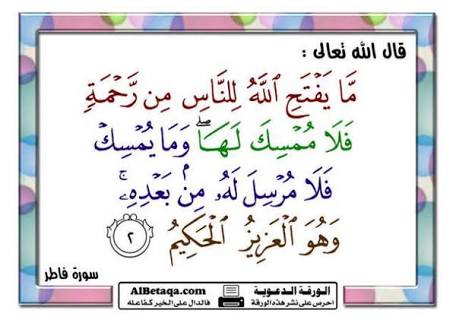 قال الله تعالى :
مَّا يَفْتَحِ ٱللَّهُ لِلنَّاسِ مِن رَّحْمَةٍ
فَلَا مُمْسِكَ لَهَا ۖ وَمَا يُمْسِكْ
فَلَا مُرْسِلَ لَهُۥ مِنۢ بَعْدِهِۦ ۚ
وَهُوَ ٱلْعَزِيزُ ٱلْحَكِيمُ ٢
سورة فاطر
AlBetaqa.com الورقة الدعوية
احرص على نشر هذه الورقة فالدال على الخير كفاعله